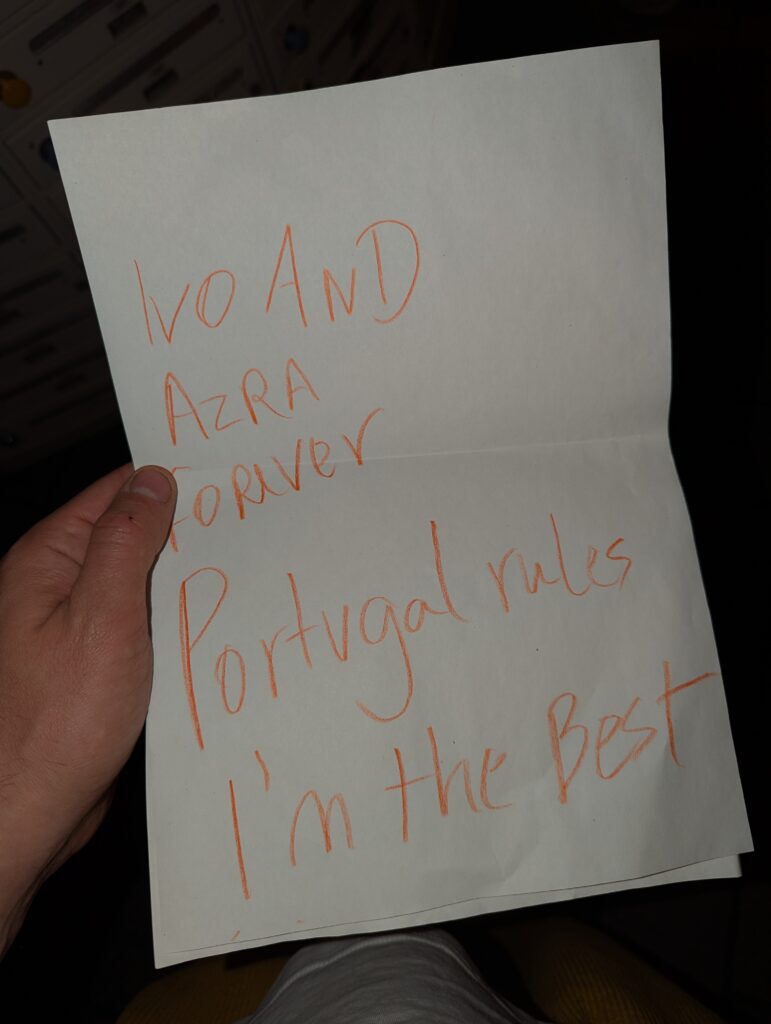 IVO AND
AZRA
FOREVER
Portugal rules
I'm the Best